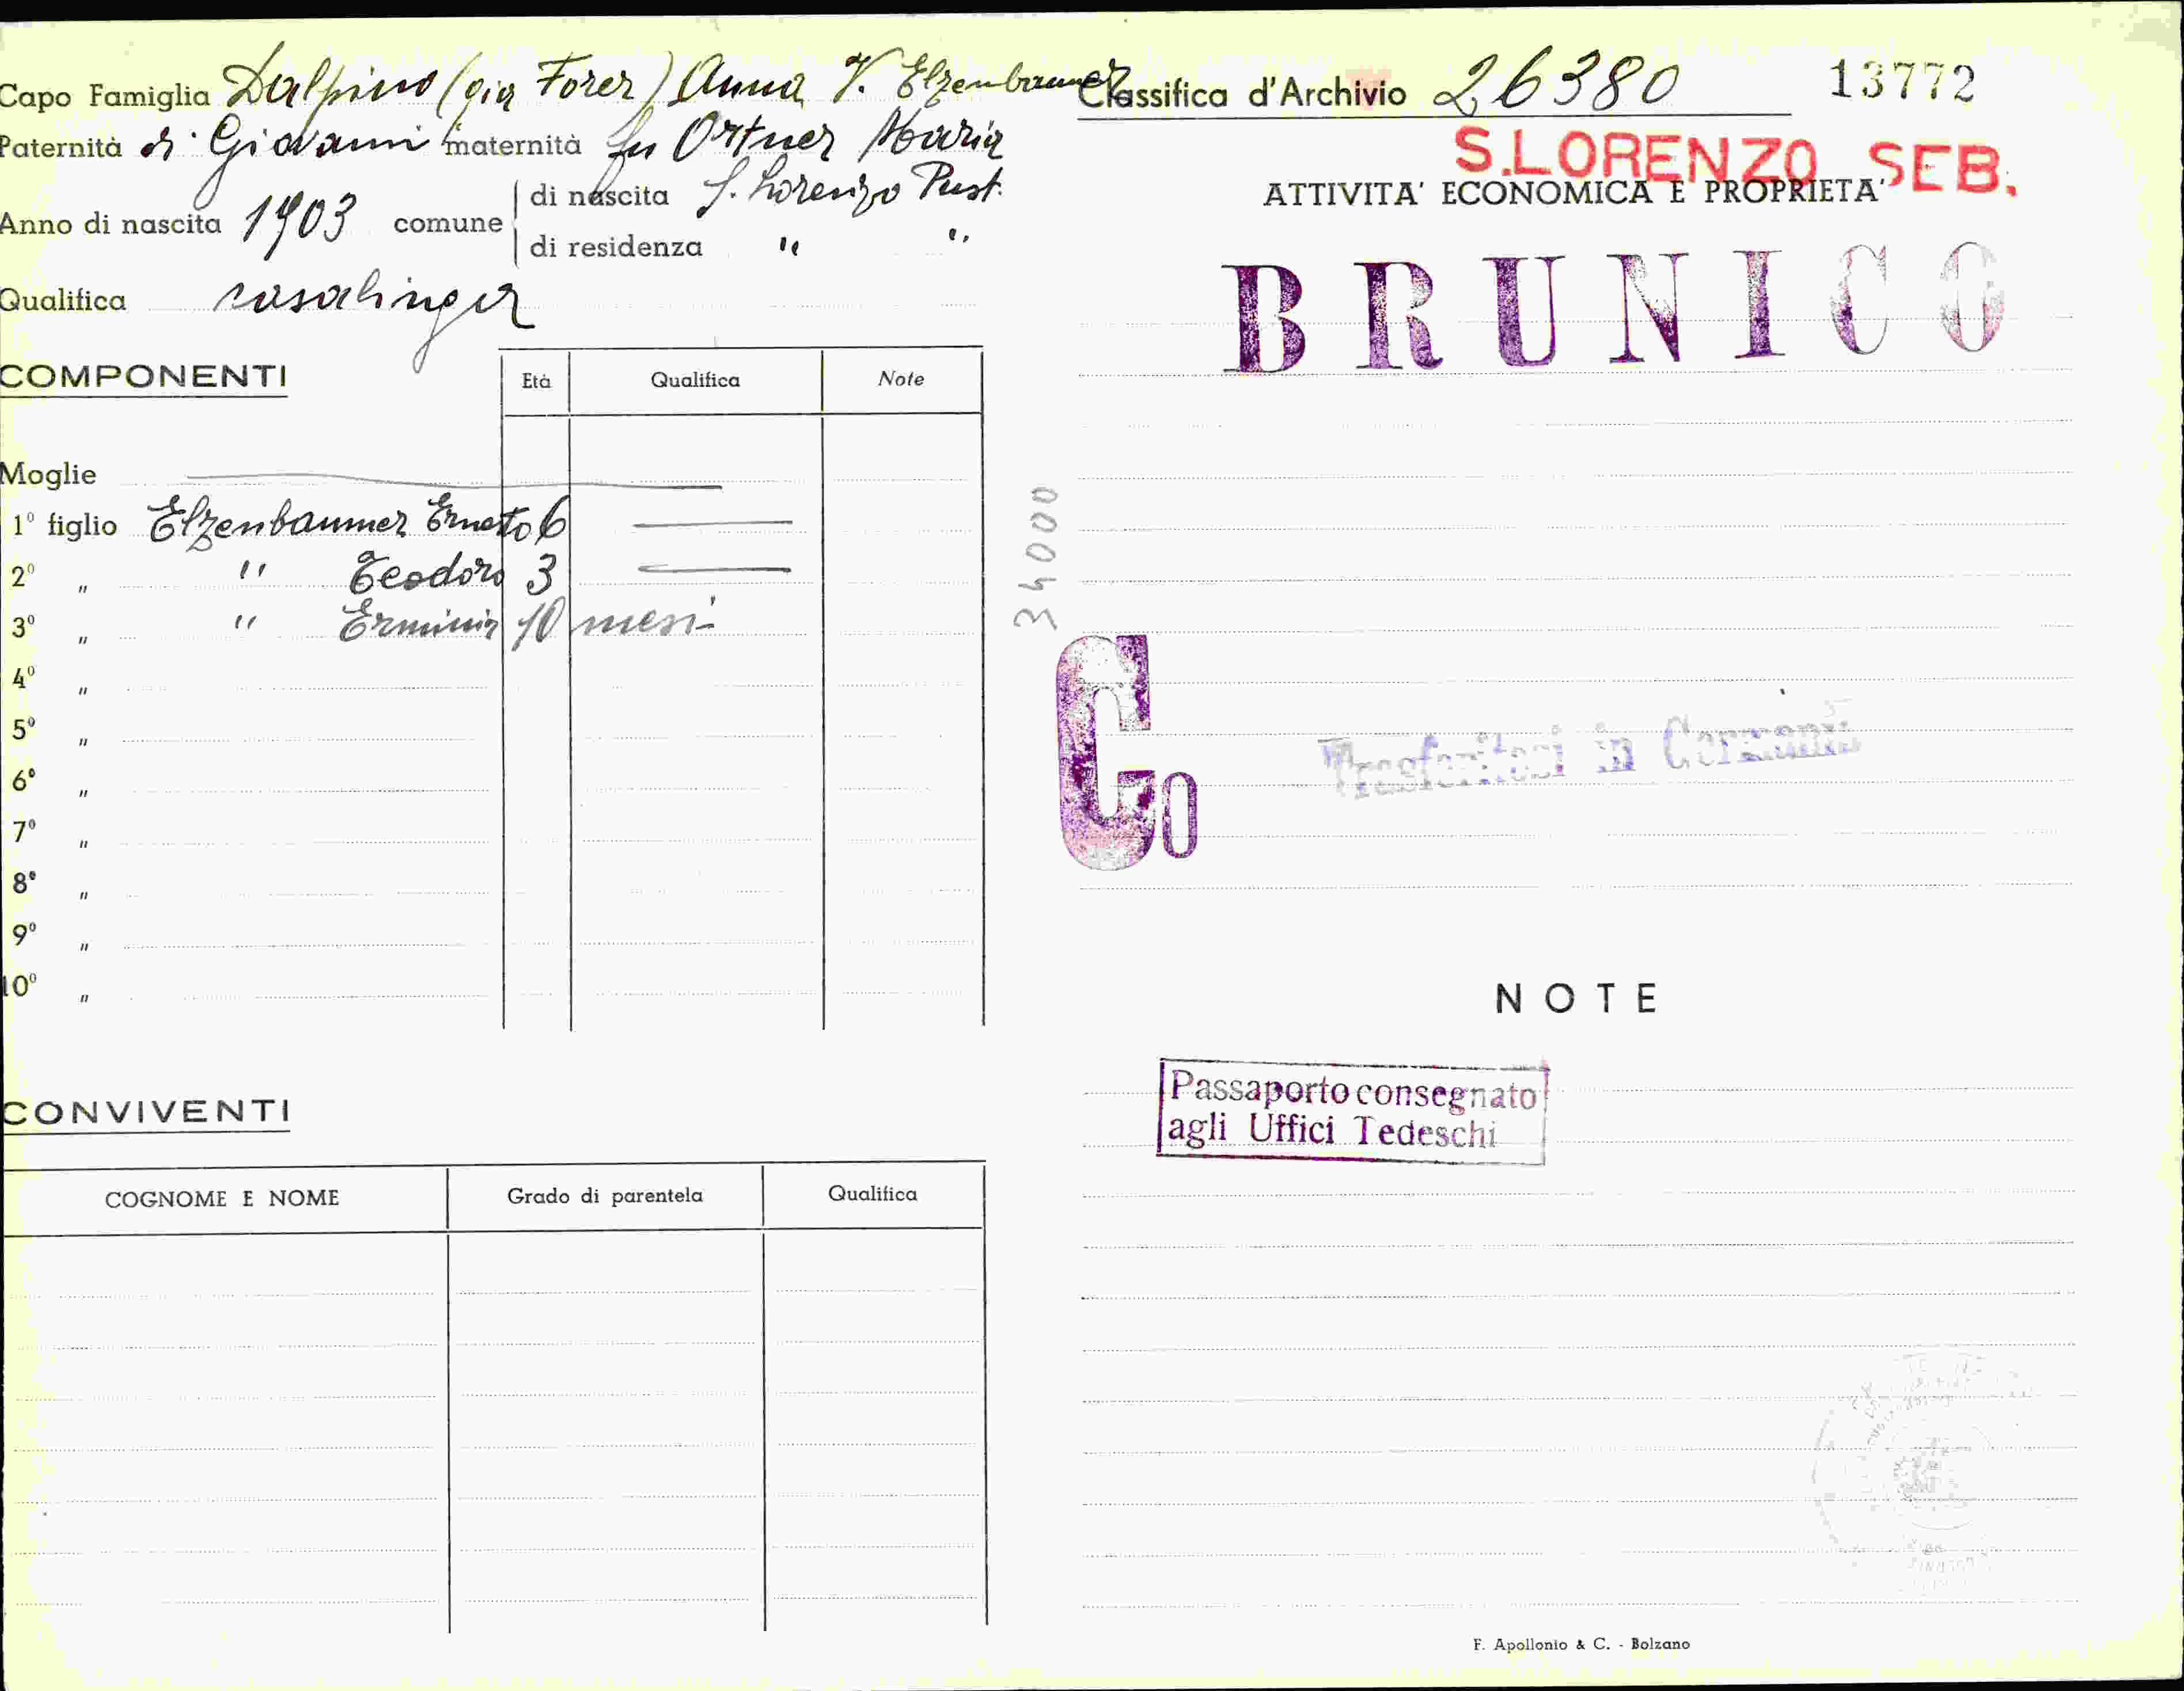 Capo Famiglia Dalpino (già Forer) Anna V. Elzenbaumer
Paternità di Giovanni maternità fu Ortner Maria
Anno di nascita 1903 comune di nascita S. Lorenzo Pust.
di residenza " "
Qualifica casalinga
COMPONENTI
Età Qualifica Note
Moglie
1° figlio Elzenbaumer Ernesto 6
2° " " Teodoro 3
3° " " Erminia 10 mesi
4° "
5° "
6° "
7° "
8° "
9° "
10° "
CONVIVENTI
COGNOME E NOME Grado di parentela Qualifica
Classifica d'Archivio 26380 13772
S.LORENZO SEB.
ATTIVITA' ECONOMICA E PROPRIETA'
BRUNICO
34000
Go
Trasferitosi in Germania
NOTE
Passaporto consegnato
agli Uffici Tedeschi
F. Apollonio & C. - Bolzano